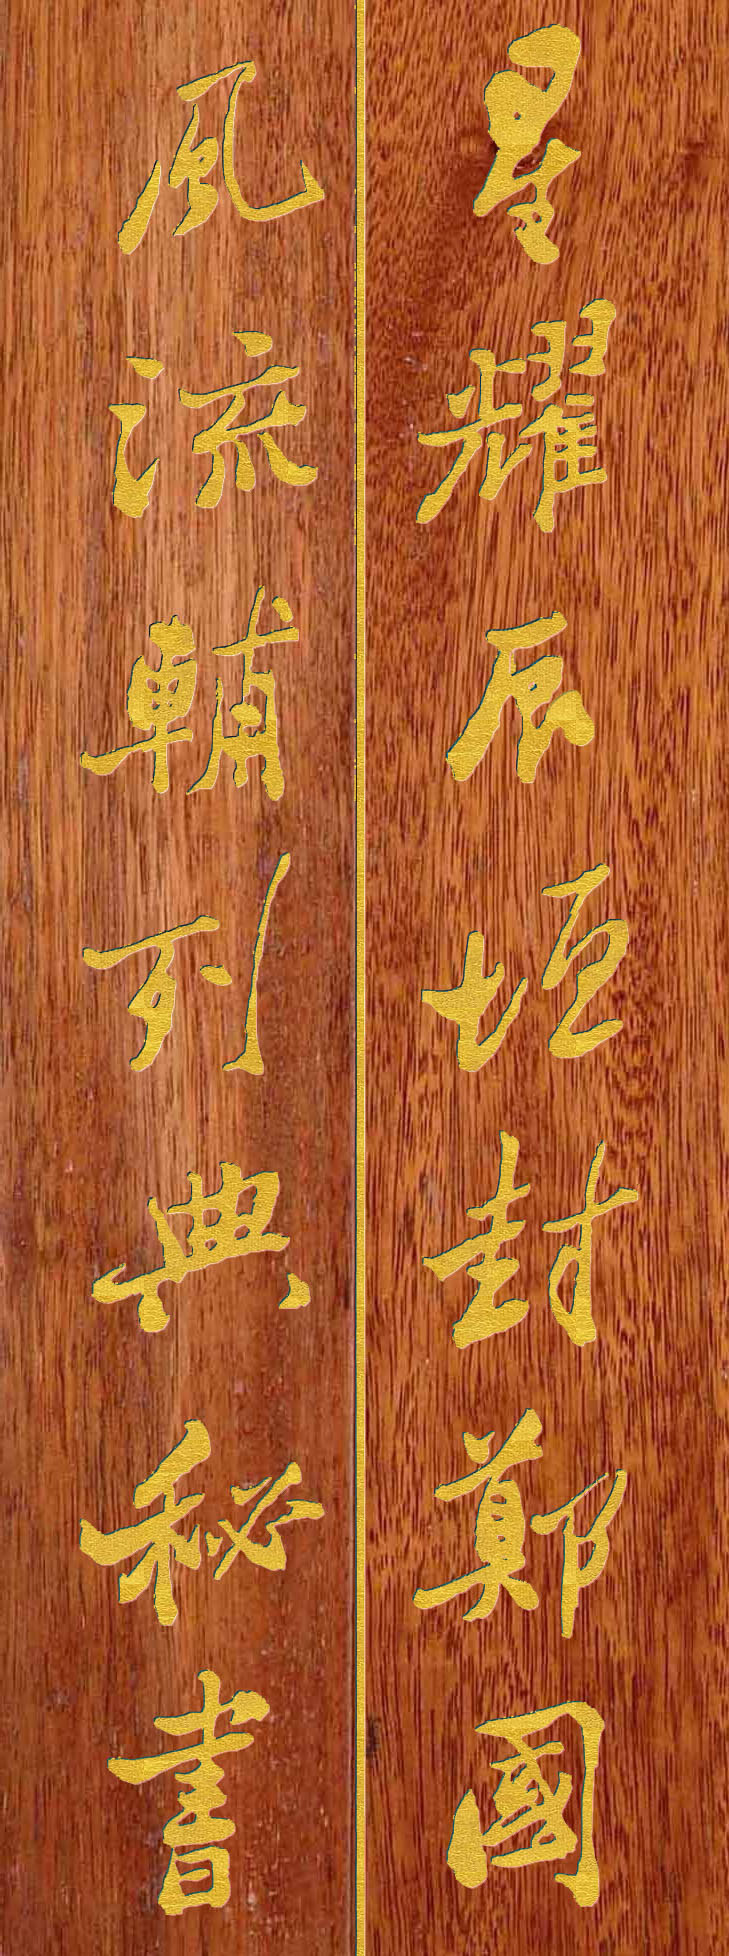 星耀辰垣封鄭國
風流輔列典秘書